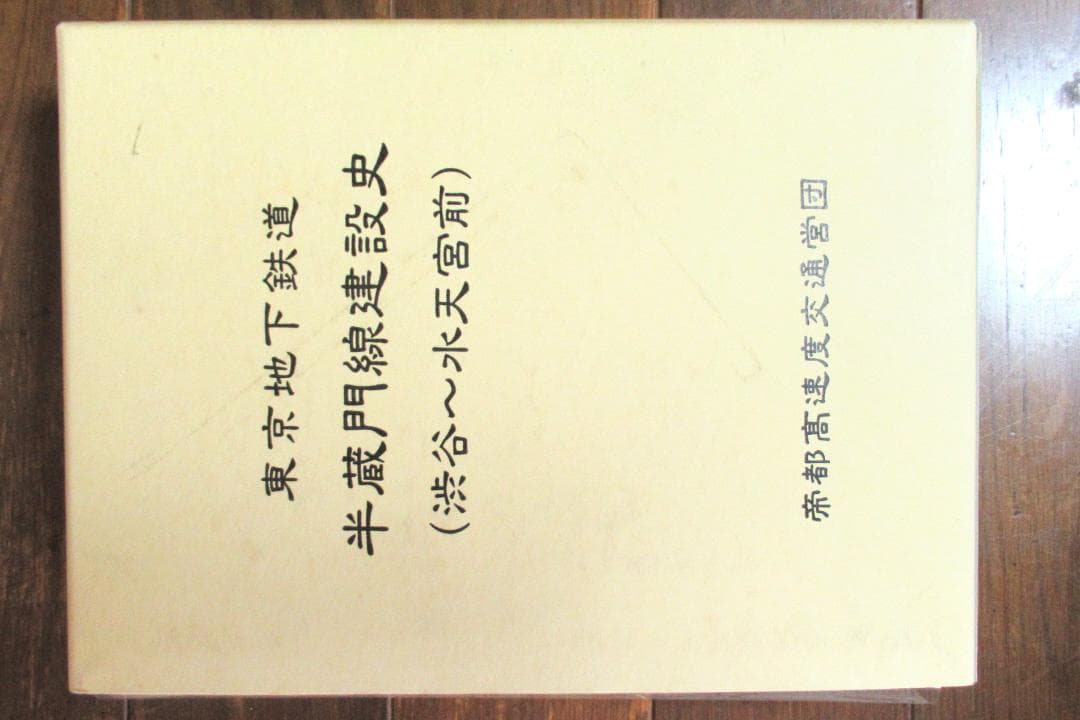 東京地下鉄道
半蔵門線建設史
(渋谷〜水天宮前)
帝都高速度交通営団